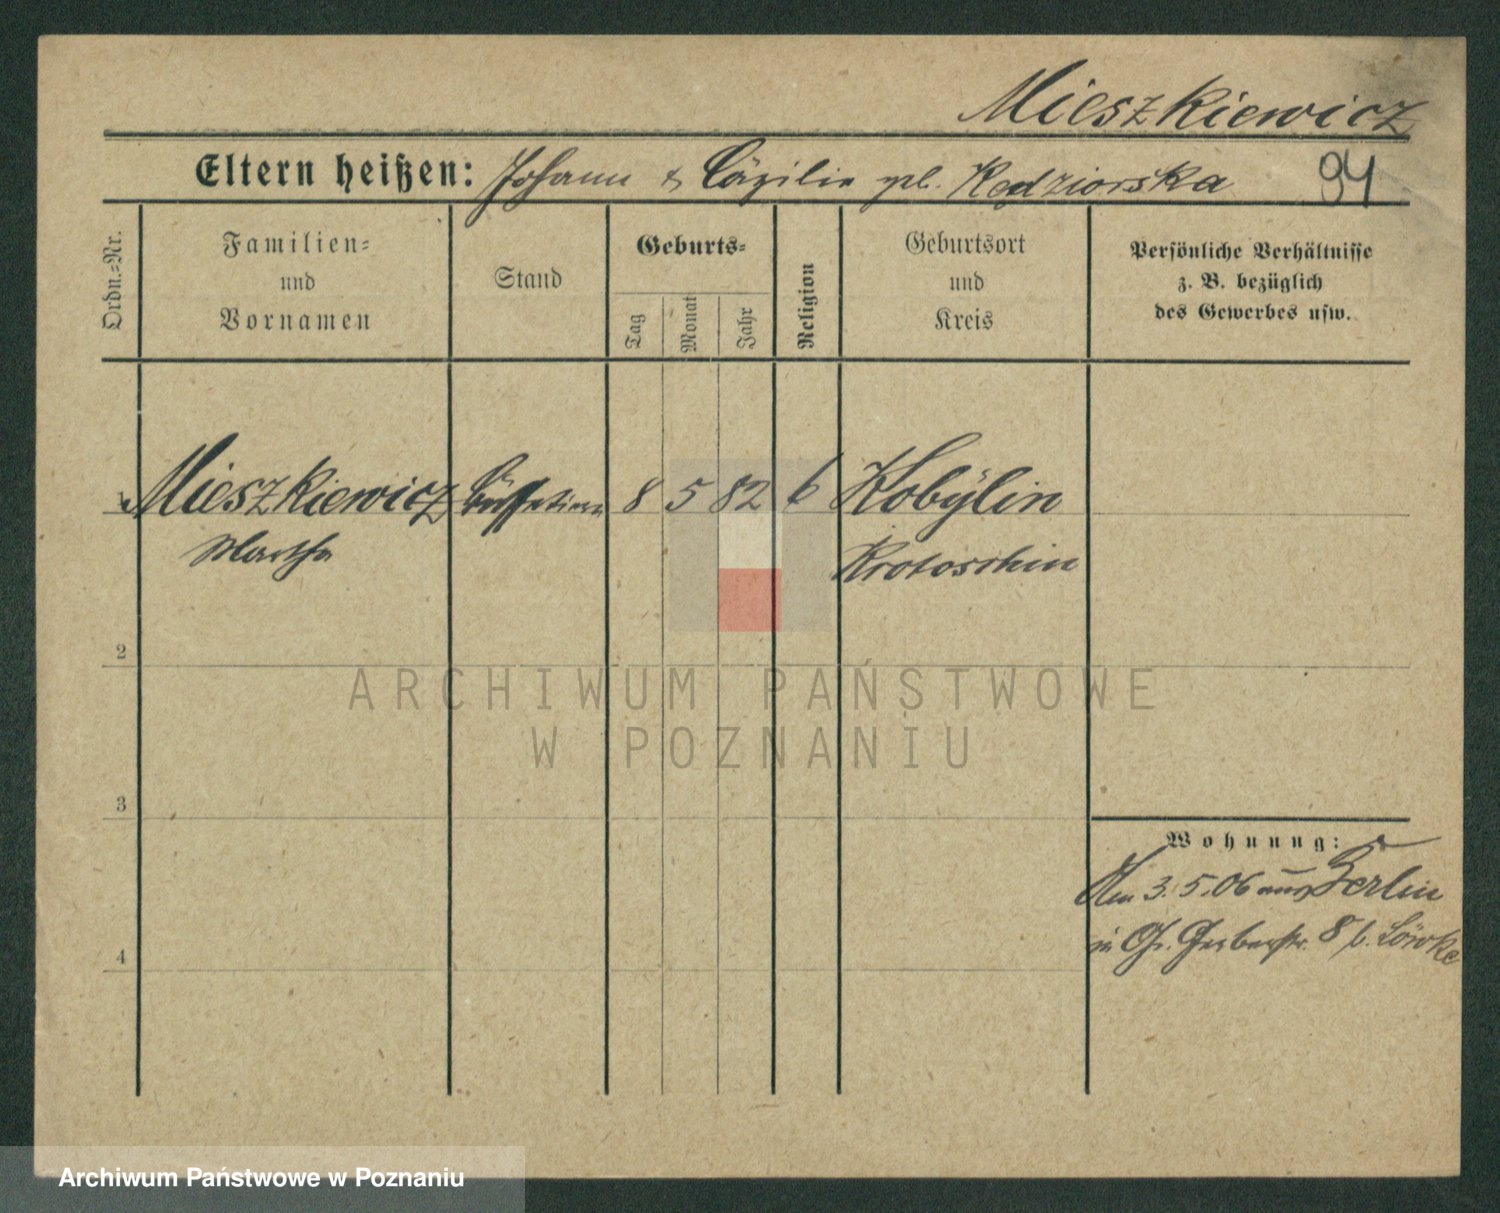 Mieszkiewicz
Eltern heißen: Johann & Cäzilie geb. Kędziorska 94
Ordn.=Nr.
Familien=
und
Vornamen
Stand
Geburts=
Tag
Monat
Jahr
Religion
Geburtsort
und
Kreis
Persönliche Verhältnisse
z. B. bezüglich
des Gewerbes usw.
1 Mieszkiewicz Büffetiere 8 5 82 Kobylin
Martha Krotoschin
2
ARCHIWUM PAŃSTWOWE
W POZNANIU
3
Wohnung:
Am 3.5.06 aus Berlin
in Gr. Gerberstr. 8 b.
4
Archiwum Państwowe w Poznaniu